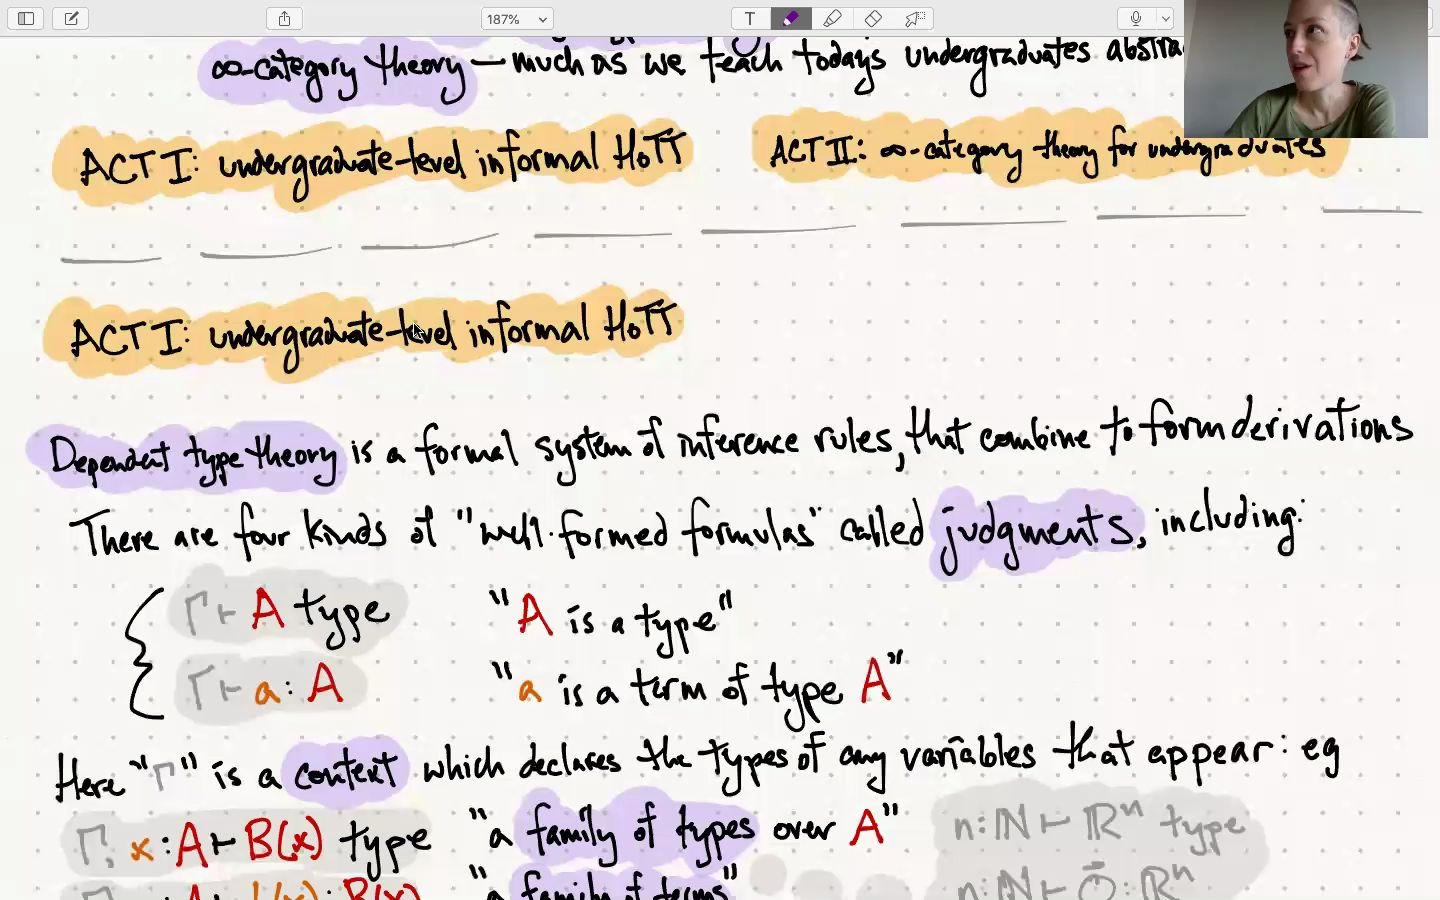 187%
T
∞-category theory — much as we teach todays undergraduates
ACT I: undergraduate-level informal HoTT
ACT II: ∞-category theory for undergraduates
ACT I: undergraduate-level informal HoTT
Dependent type theory is a formal system of inference rules, that combine to form derivations
There are four kinds of "well-formed formulas" called judgments, including:
Γ ⊢ A type "A is a type"
Γ ⊢ a : A "a is a term of type A"
Here "Γ" is a context which declares the types of any variables that appear: eg
Γ, x : A ⊢ B(x) type "a family of types over A" n : ℕ ⊢ ℝⁿ type
"a family of terms" n : ℕ ⊢ 0⃗ : ℝⁿ